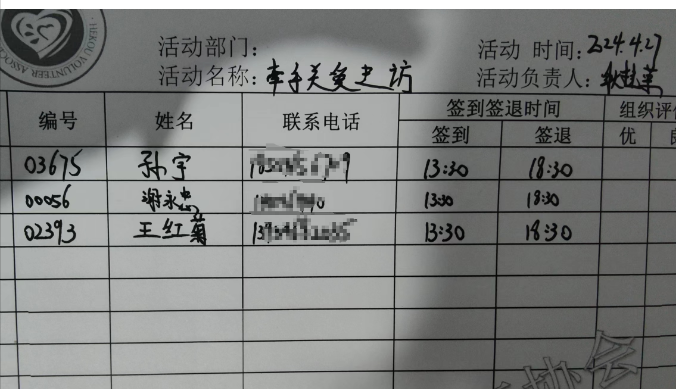 HEKOU VOLUNTEER ASSOC
活动部门：
活动 时间：2024.4.27
活动名称：牵手关爱走访
活动负责人：
编号 姓名 联系电话 签到签退时间 组织评
签到 签退 优
03675 孙宇 13:30 18:30
00056 谢永忠 13:30 18:30
02393 王红菊 13:30 18:30
协会